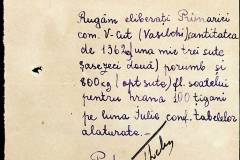 Rugăm eliberați Primăriei
com. V-Cut (Vasilchi) cantitatea
de 1362 kg una mie trei sute
șasezeci două) porumb și
800 kg (opt sute) fl. soatelui
pentru hrana 100 țigani
pe luna Iulie conf. tabelelor
alaturate.